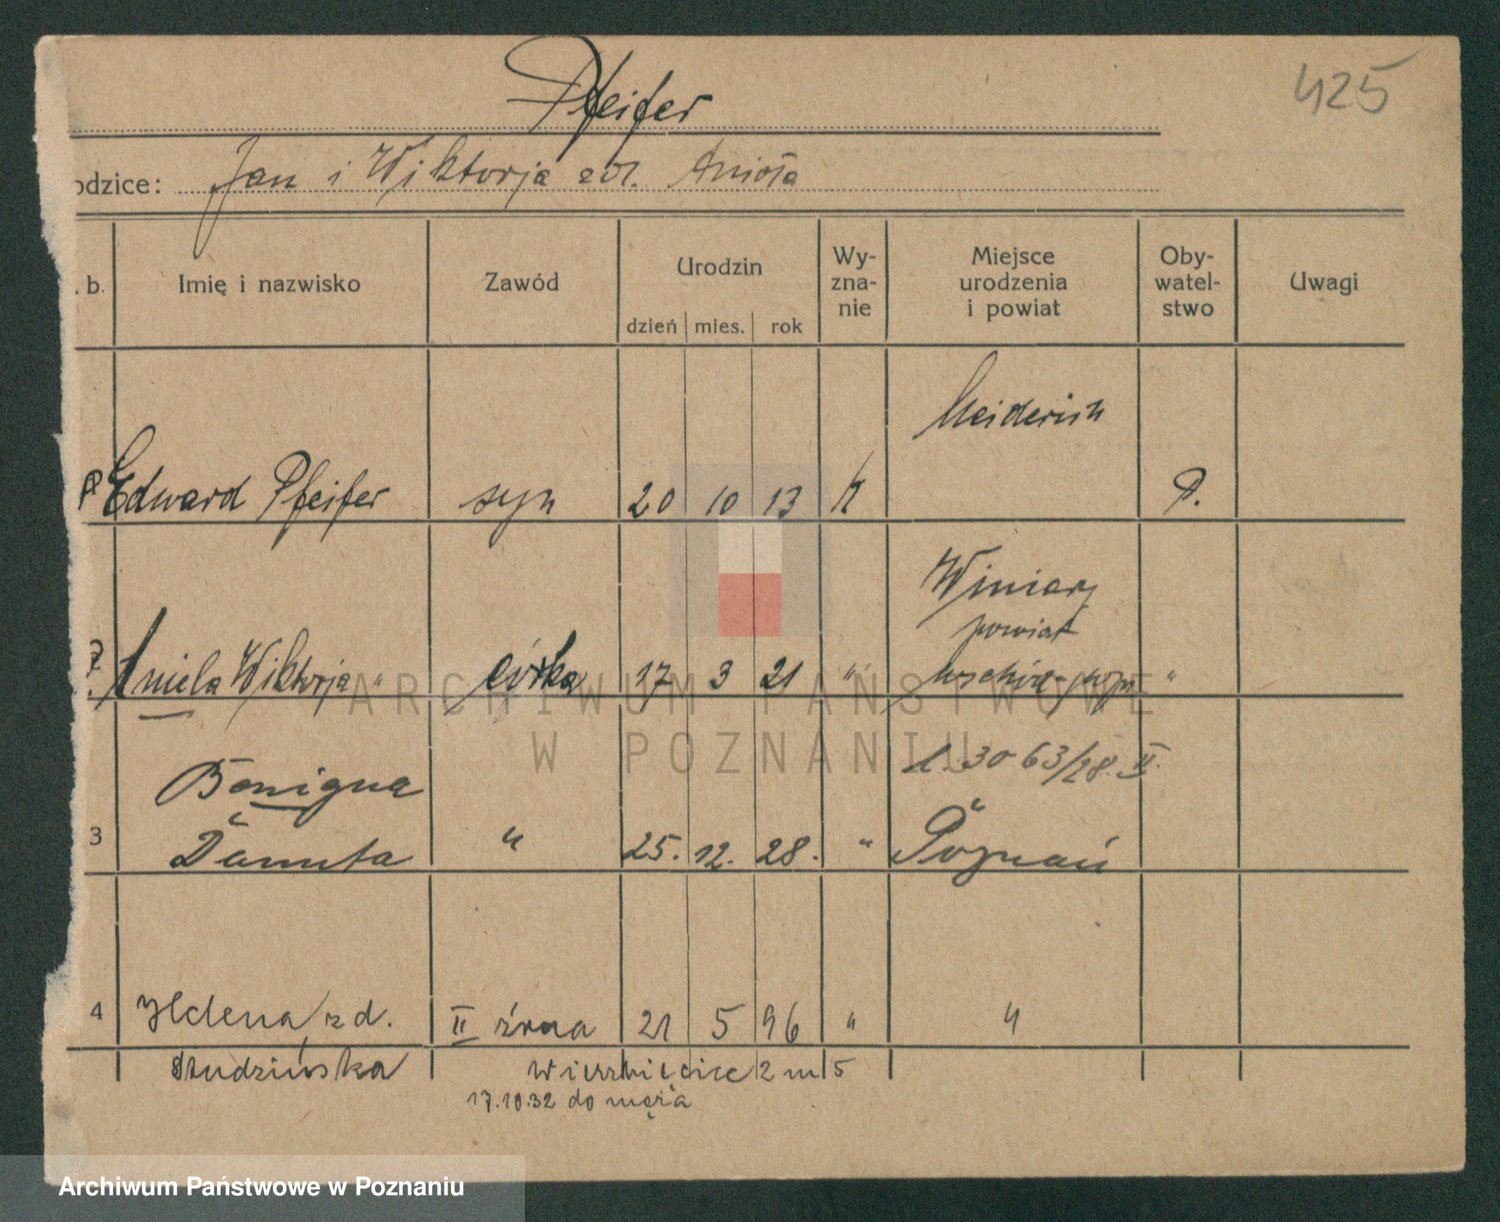 425
Pfeifer
odzice: Jan i Wiktorja zd. Anioła
. b. Imię i nazwisko Zawód Urodzin Wy-zna-nie Miejsce urodzenia i powiat Oby-watel-stwo Uwagi
dzień mies. rok
Meiderich
Edward Pfeifer syn 20 10 13 K P.
Winiary
powiat
2 Aniela Wiktorja " córka 17 3 21 " "
ARCHIWUM PAŃSTWOWE
W POZNANIU
L. 3063/28. II.
Benigna
3 Danuta " 25. 12. 28. " Poznań
4 Helena zd. II żona 21 5 96 " "
Studzińska Wierzbięcice 2 m 5
17.10.32 do męża
Archiwum Państwowe w Poznaniu